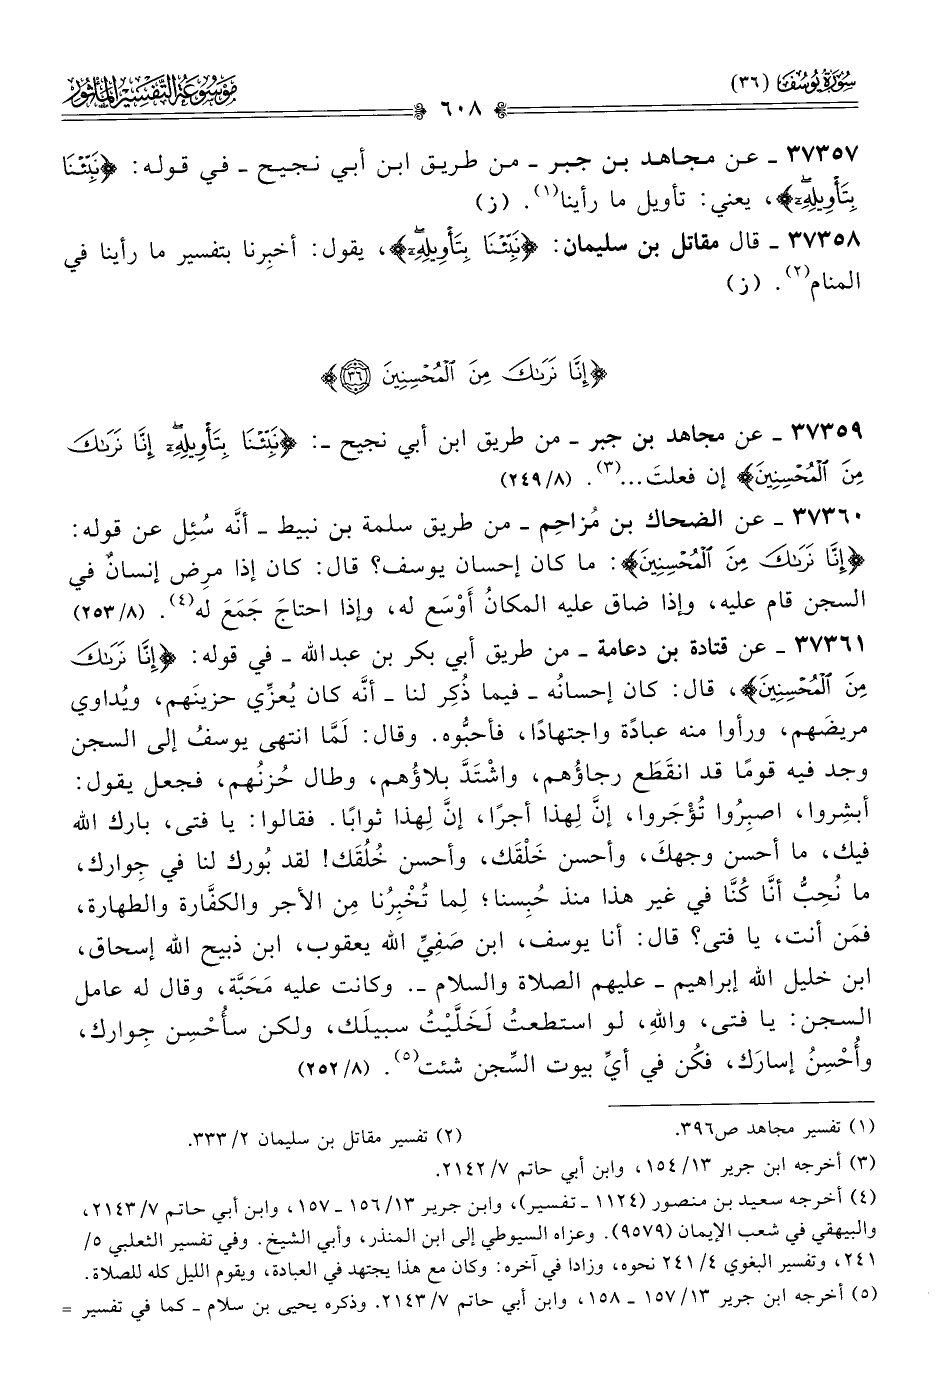 سورة يوسف (٣٦)
٦٠٨
موسوعة التفسير المأثور
٣٧٣٥٧ ـ عن مجاهد بن جبر ـ من طريق ابن أبي نجيح ـ في قوله: ﴿نَبِّئْنَا
بِتَأْوِيلِهِۦٓ﴾، يعني: تأويل ما رأينا(١). (ز)
٣٧٣٥٨ ـ قال مقاتل بن سليمان: ﴿نَبِّئْنَا بِتَأْوِيلِهِۦٓ﴾، يقول: أخبِرنا بتفسير ما رأينا في
المنام(٢). (ز)
﴿إِنَّا نَرَىٰكَ مِنَ ٱلْمُحْسِنِينَ ٣٦﴾
٣٧٣٥٩ ـ عن مجاهد بن جبر ـ من طريق ابن أبي نجيح ـ: ﴿نَبِّئْنَا بِتَأْوِيلِهِۦٓ إِنَّا نَرَىٰكَ
مِنَ ٱلْمُحْسِنِينَ﴾ إن فعلتَ...(٣). (٨/ ٢٤٩)
٣٧٣٦٠ ـ عن الضحاك بن مُزاحِم ـ من طريق سلمة بن نبيط ـ أنَّه سُئِل عن قوله:
﴿إِنَّا نَرَىٰكَ مِنَ ٱلْمُحْسِنِينَ﴾: ما كان إحسان يوسف؟ قال: كان إذا مرِض إنسانٌ في
السجن قام عليه، وإذا ضاق عليه المكانُ أوْسَع له، وإذا احتاجَ جَمَعَ له(٤). (٨/ ٢٥٣)
٣٧٣٦١ ـ عن قتادة بن دعامة ـ من طريق أبي بكر بن عبدالله ـ في قوله: ﴿إِنَّا نَرَىٰكَ
مِنَ ٱلْمُحْسِنِينَ﴾، قال: كان إحسانُه ـ فيما ذُكِر لنا ـ أنَّه كان يُعزِّي حزينَهم، ويُداوي
مريضَهم، ورأوا منه عبادًة واجتهادًا، فأحبُّوه. وقال: لَمَّا انتهى يوسفُ إلى السجن
وجد فيه قومًا قد انقَطَع رجاؤُهم، واشْتَدَّ بلاؤُهم، وطال حُزنُهم، فجعل يقول:
أبشِروا، اصبِرُوا تُؤْجَروا، إنَّ لِهذا أجرًا، إنَّ لِهذا ثوابًا. فقالوا: يا فتى، بارك الله
فيك، ما أحسن وجهكَ، وأحسن خَلْقَك، وأحسن خُلُقَك! لقد بُورك لنا في جوارك،
ما نُحِبُّ أنَّا كُنَّا في غير هذا منذ حُبِسنا؛ لِما تُخْبِرُنا مِن الأجر والكفَّارة والطهارة،
فمَن أنت، يا فتى؟ قال: أنا يوسف، ابن صَفِيِّ الله يعقوب، ابن ذبيح الله إسحاق،
ابن خليل الله إبراهيم ـ عليهم الصلاة والسلام ـ. وكانت عليه مَحَبَّة، وقال له عامل
السجن: يا فتى، واللهِ، لو استطعتُ لَخَلَّيْتُ سبيلَك، ولكن سأُحْسِن جِوارك،
وأُحْسِنُ إسارَك، فكُن في أيِّ بيوت السِّجن شئت(٥). (٨/ ٢٥٢)
(١) تفسير مجاهد ص٣٩٦. (٢) تفسير مقاتل بن سليمان ٢/ ٣٣٣.
(٣) أخرجه ابن جرير ١٣/ ١٥٤، وابن أبي حاتم ٧/ ٢١٤٢.
(٤) أخرجه سعيد بن منصور (١١٢٤ ـ تفسير)، وابن جرير ١٣/ ١٥٦ ـ ١٥٧، وابن أبي حاتم ٧/ ٢١٤٣،
والبيهقي في شعب الإيمان (٩٥٧٩). وعزاه السيوطي إلى ابن المنذر، وأبي الشيخ. وفي تفسير الثعلبي ٥/
٢٤١، وتفسير البغوي ٤/ ٢٤١ نحوه، وزادا في آخره: وكان مع هذا يجتهد في العبادة، ويقوم الليل كله للصلاة.
(٥) أخرجه ابن جرير ١٣/ ١٥٧ ـ ١٥٨، وابن أبي حاتم ٧/ ٢١٤٣. وذكره يحيى بن سلام ـ كما في تفسير =